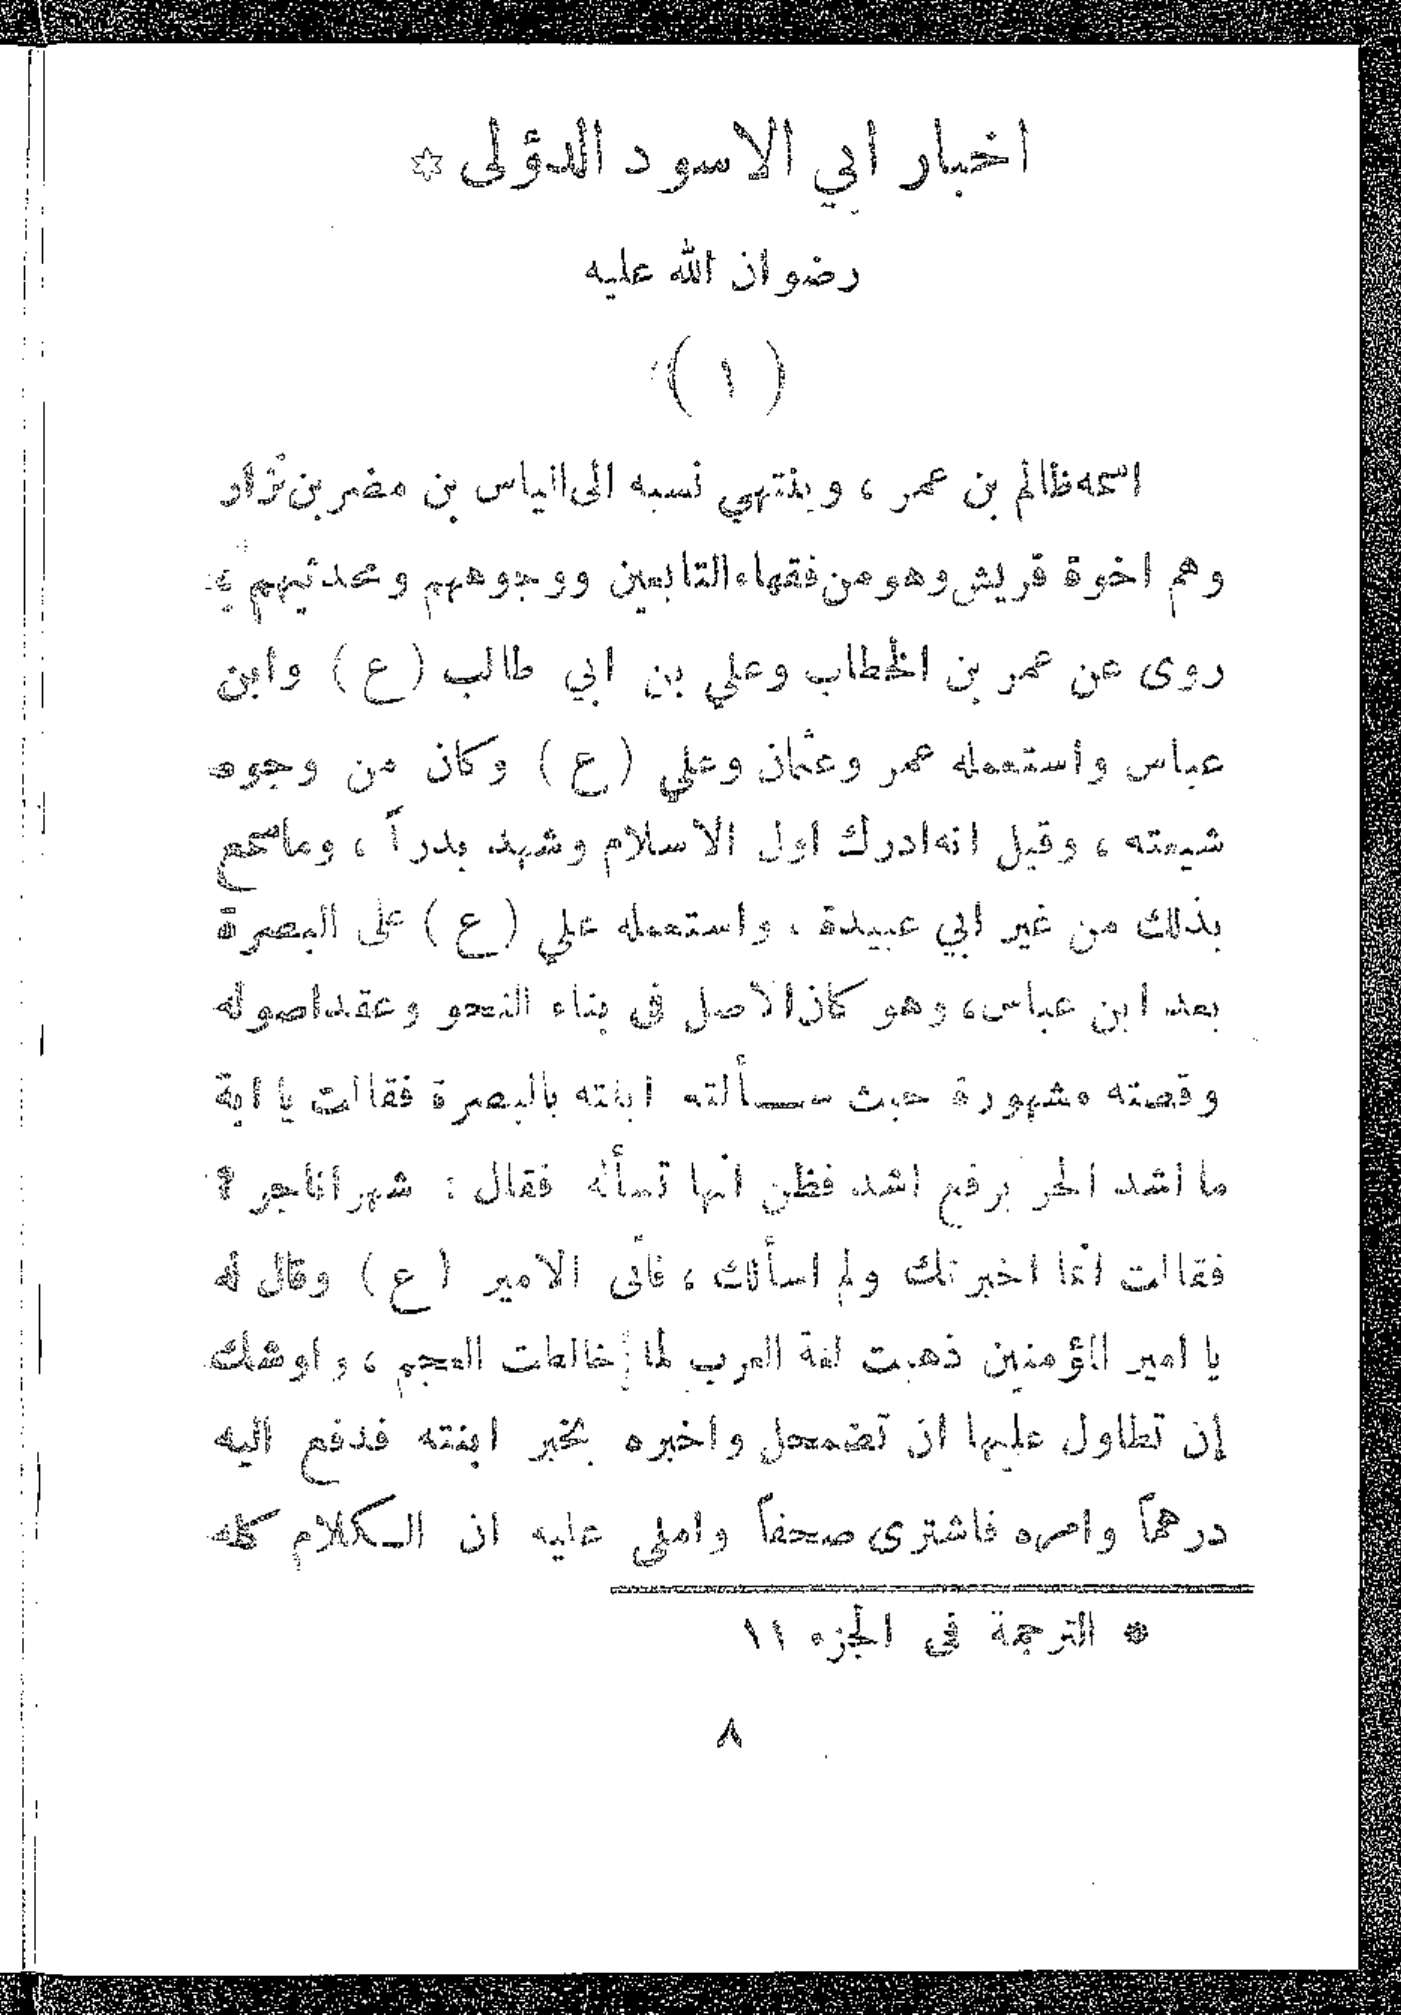 اخبار ابي الاسود الدؤلى *
رضوان الله عليه
( ١ )
اسمه ظالم بن عمر ، وينتهي نسبه الى الياس بن مضر بن نزار
وهم اخوة قريش وهو من فقهاء التابعين ووجوههم ومحدثيهم ،
روى عن عمر بن الخطاب وعلي بن ابي طالب ( ع ) وابن
عباس واستعمله عمر وعثمان وعلي ( ع ) وكان من وجوه
شيعته ، وقيل انه ادرك اول الاسلام وشهد بدراً ، وماسمع
بذلك من غير ابي عبيدة ، واستعمله علي ( ع ) على البصرة
بعد ابن عباس ، وهو كان الاصل في بناء النحو وعقد اصوله
وقصته مشهورة حيث سألته ابنته بالبصرة فقالت يا ابة
ما اشد الحر برفع اشد فظن انها تسأله فقال : شهرا ناجر ؟
فقالت انما اخبرتك ولم اسألك ، فأتى الامير ( ع ) وقال له
يا امير المؤمنين ذهبت لغة العرب لما خالطت العجم ، واوشك
إن تطاول عليها ان تضمحل واخبره بخبر ابنته فدفع اليه
درهماً وامره فاشترى صحفاً واملى عليه ان الكلام كله
* الترجمة في الجزء ١١
٨